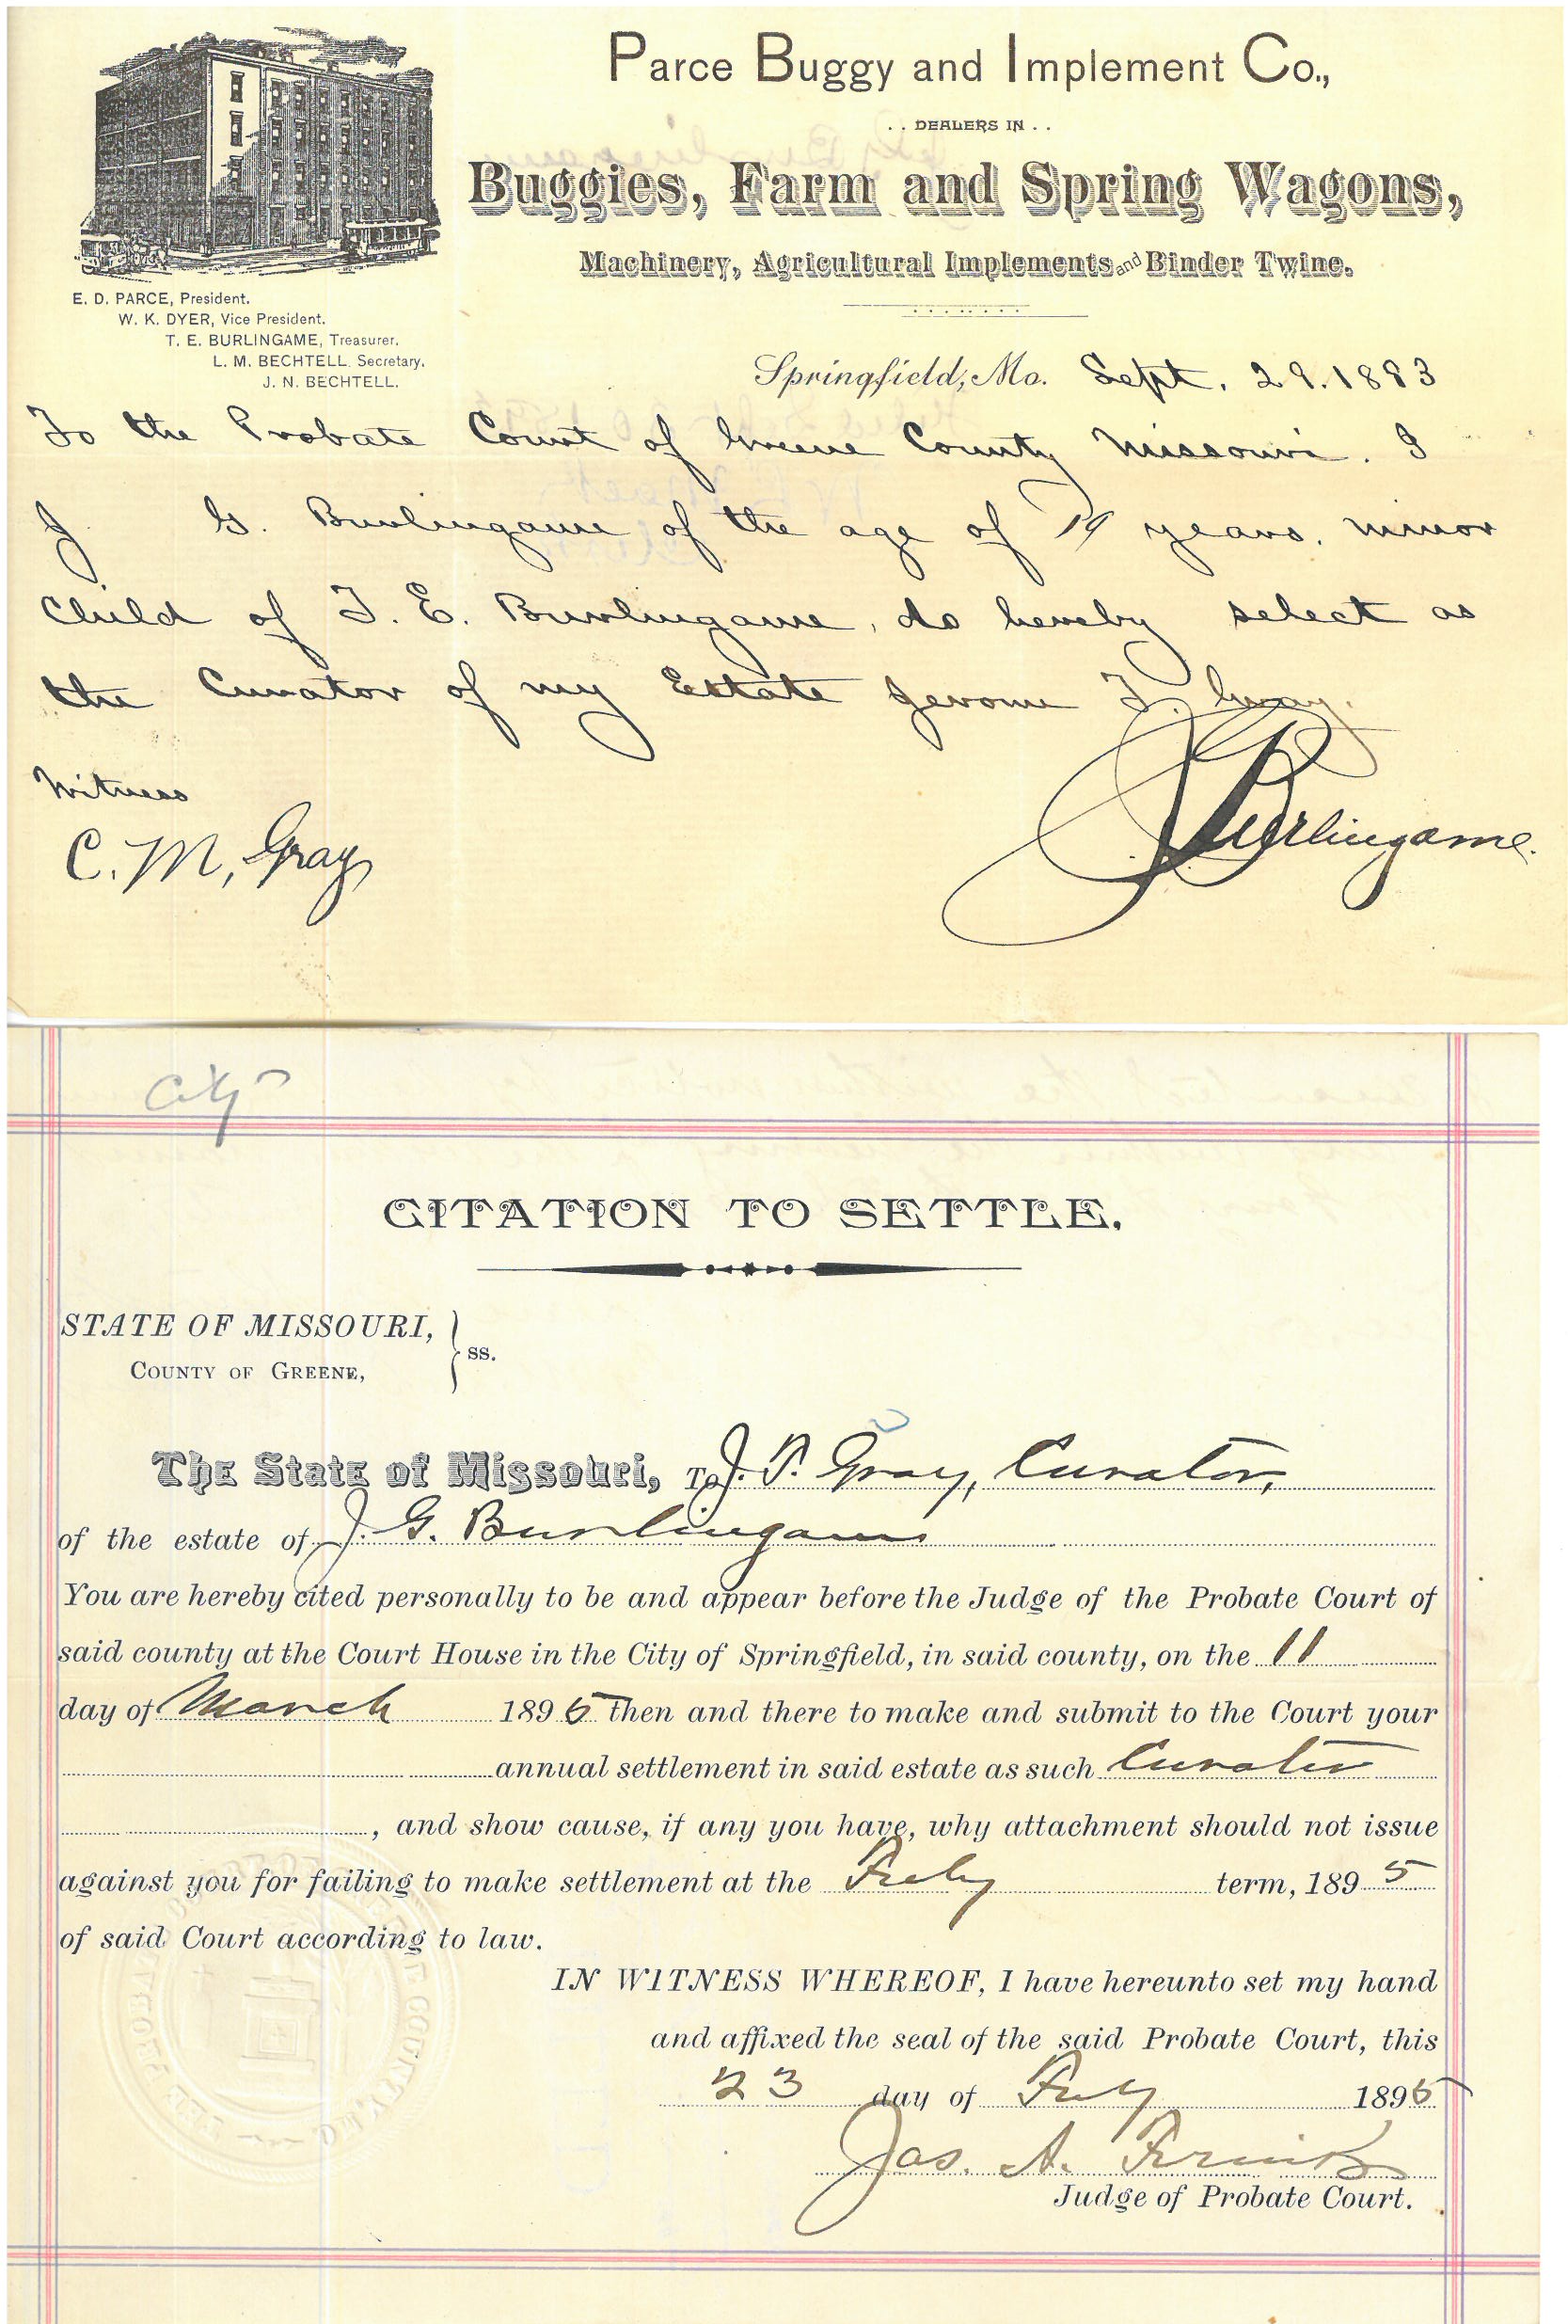 Parce Buggy and Implement Co.,
. . DEALERS IN . .
Buggies, Farm and Spring Wagons,
Machinery, Agricultural Implements and Binder Twine.
E. D. PARCE, President.
W. K. DYER, Vice President.
T. E. BURLINGAME, Treasurer.
L. M. BECHTELL Secretary.
J. N. BECHTELL.
Springfield, Mo. Sept. 29. 1893
To the Probate Court of Greene County Missouri. I
J G. Burlingame of the age of 19 years, minor
Child of T. E. Burlingame, do hereby select as
the Curator of my Estate Jerome T. Gray.
Witness
C. M, Gray
J G Burlingame.
City
CITATION TO SETTLE.
STATE OF MISSOURI,
COUNTY OF GREENE,
} ss.
The State of Missouri, To J. T. Gray, Curator,
of the estate of J. G. Burlingame
You are hereby cited personally to be and appear before the Judge of the Probate Court of
said county at the Court House in the City of Springfield, in said county, on the 11
day of March 1895 then and there to make and submit to the Court your
annual settlement in said estate as such Curator
, and show cause, if any you have, why attachment should not issue
against you for failing to make settlement at the Feby term, 1895
of said Court according to law.
IN WITNESS WHEREOF, I have hereunto set my hand
and affixed the seal of the said Probate Court, this
23 day of Feby 1895
Jas. A. Frink
Judge of Probate Court.